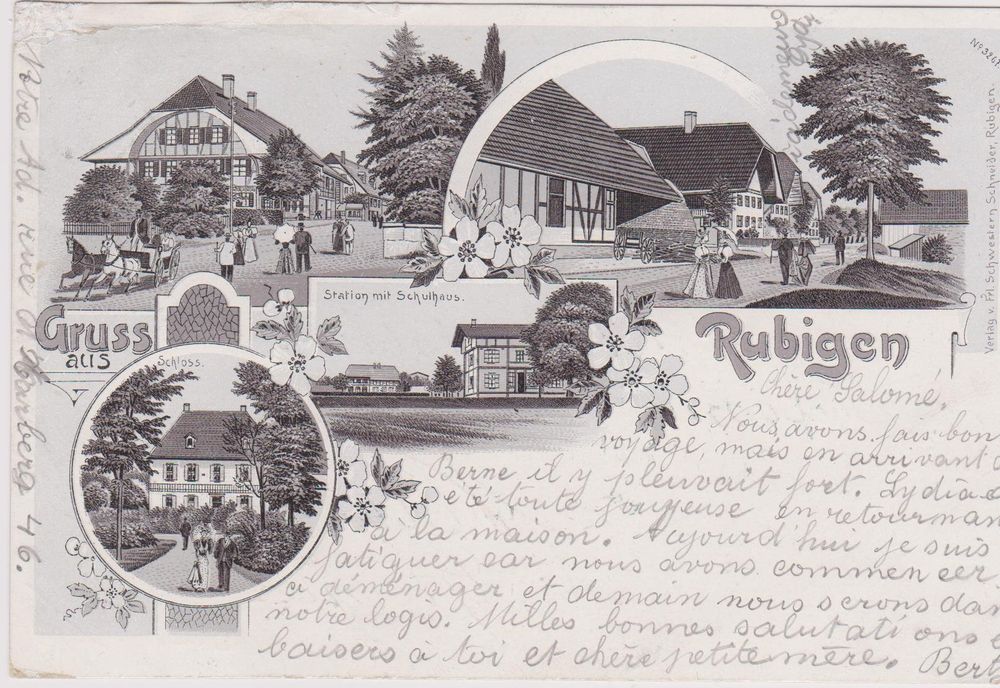 Station mit Schulhaus.
Gruss
aus
Schloss.
Rubigen
Verlag v. Frl. Schwestern Schneider, Rubigen.
Chère Salomé,
Nous avons fais bon
voyage, mais en arrivant
Berne il y pleuvait fort. Lydia
été toute joyeuse en retournan
à la maison. Aujourd'hui je suis
fatiguer car nous avons commencer
a déménager et demain nous serons dan
notre logis. Milles bonnes salutations
baisers à toi et chère petite mère. Bert
Notre Ad. rue
46.